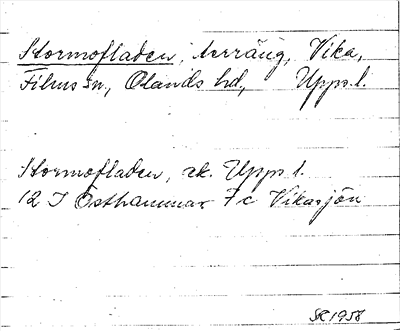 Stormofladen, terräng, Vika,
Films sn, Olands hd, Uppl.
Stormofladen, ek. Uppl.
12 I Östhammar 7c Vikasjön
SR 1958